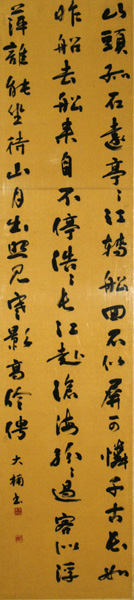 山頭孤石遠亭〻江轉船回石似屏可憐千古長如
昨船去船來自不停浩〻長江赴滄海紛〻過客似浮
萍誰能坐待山月出照見寒影高伶俜 大楠书